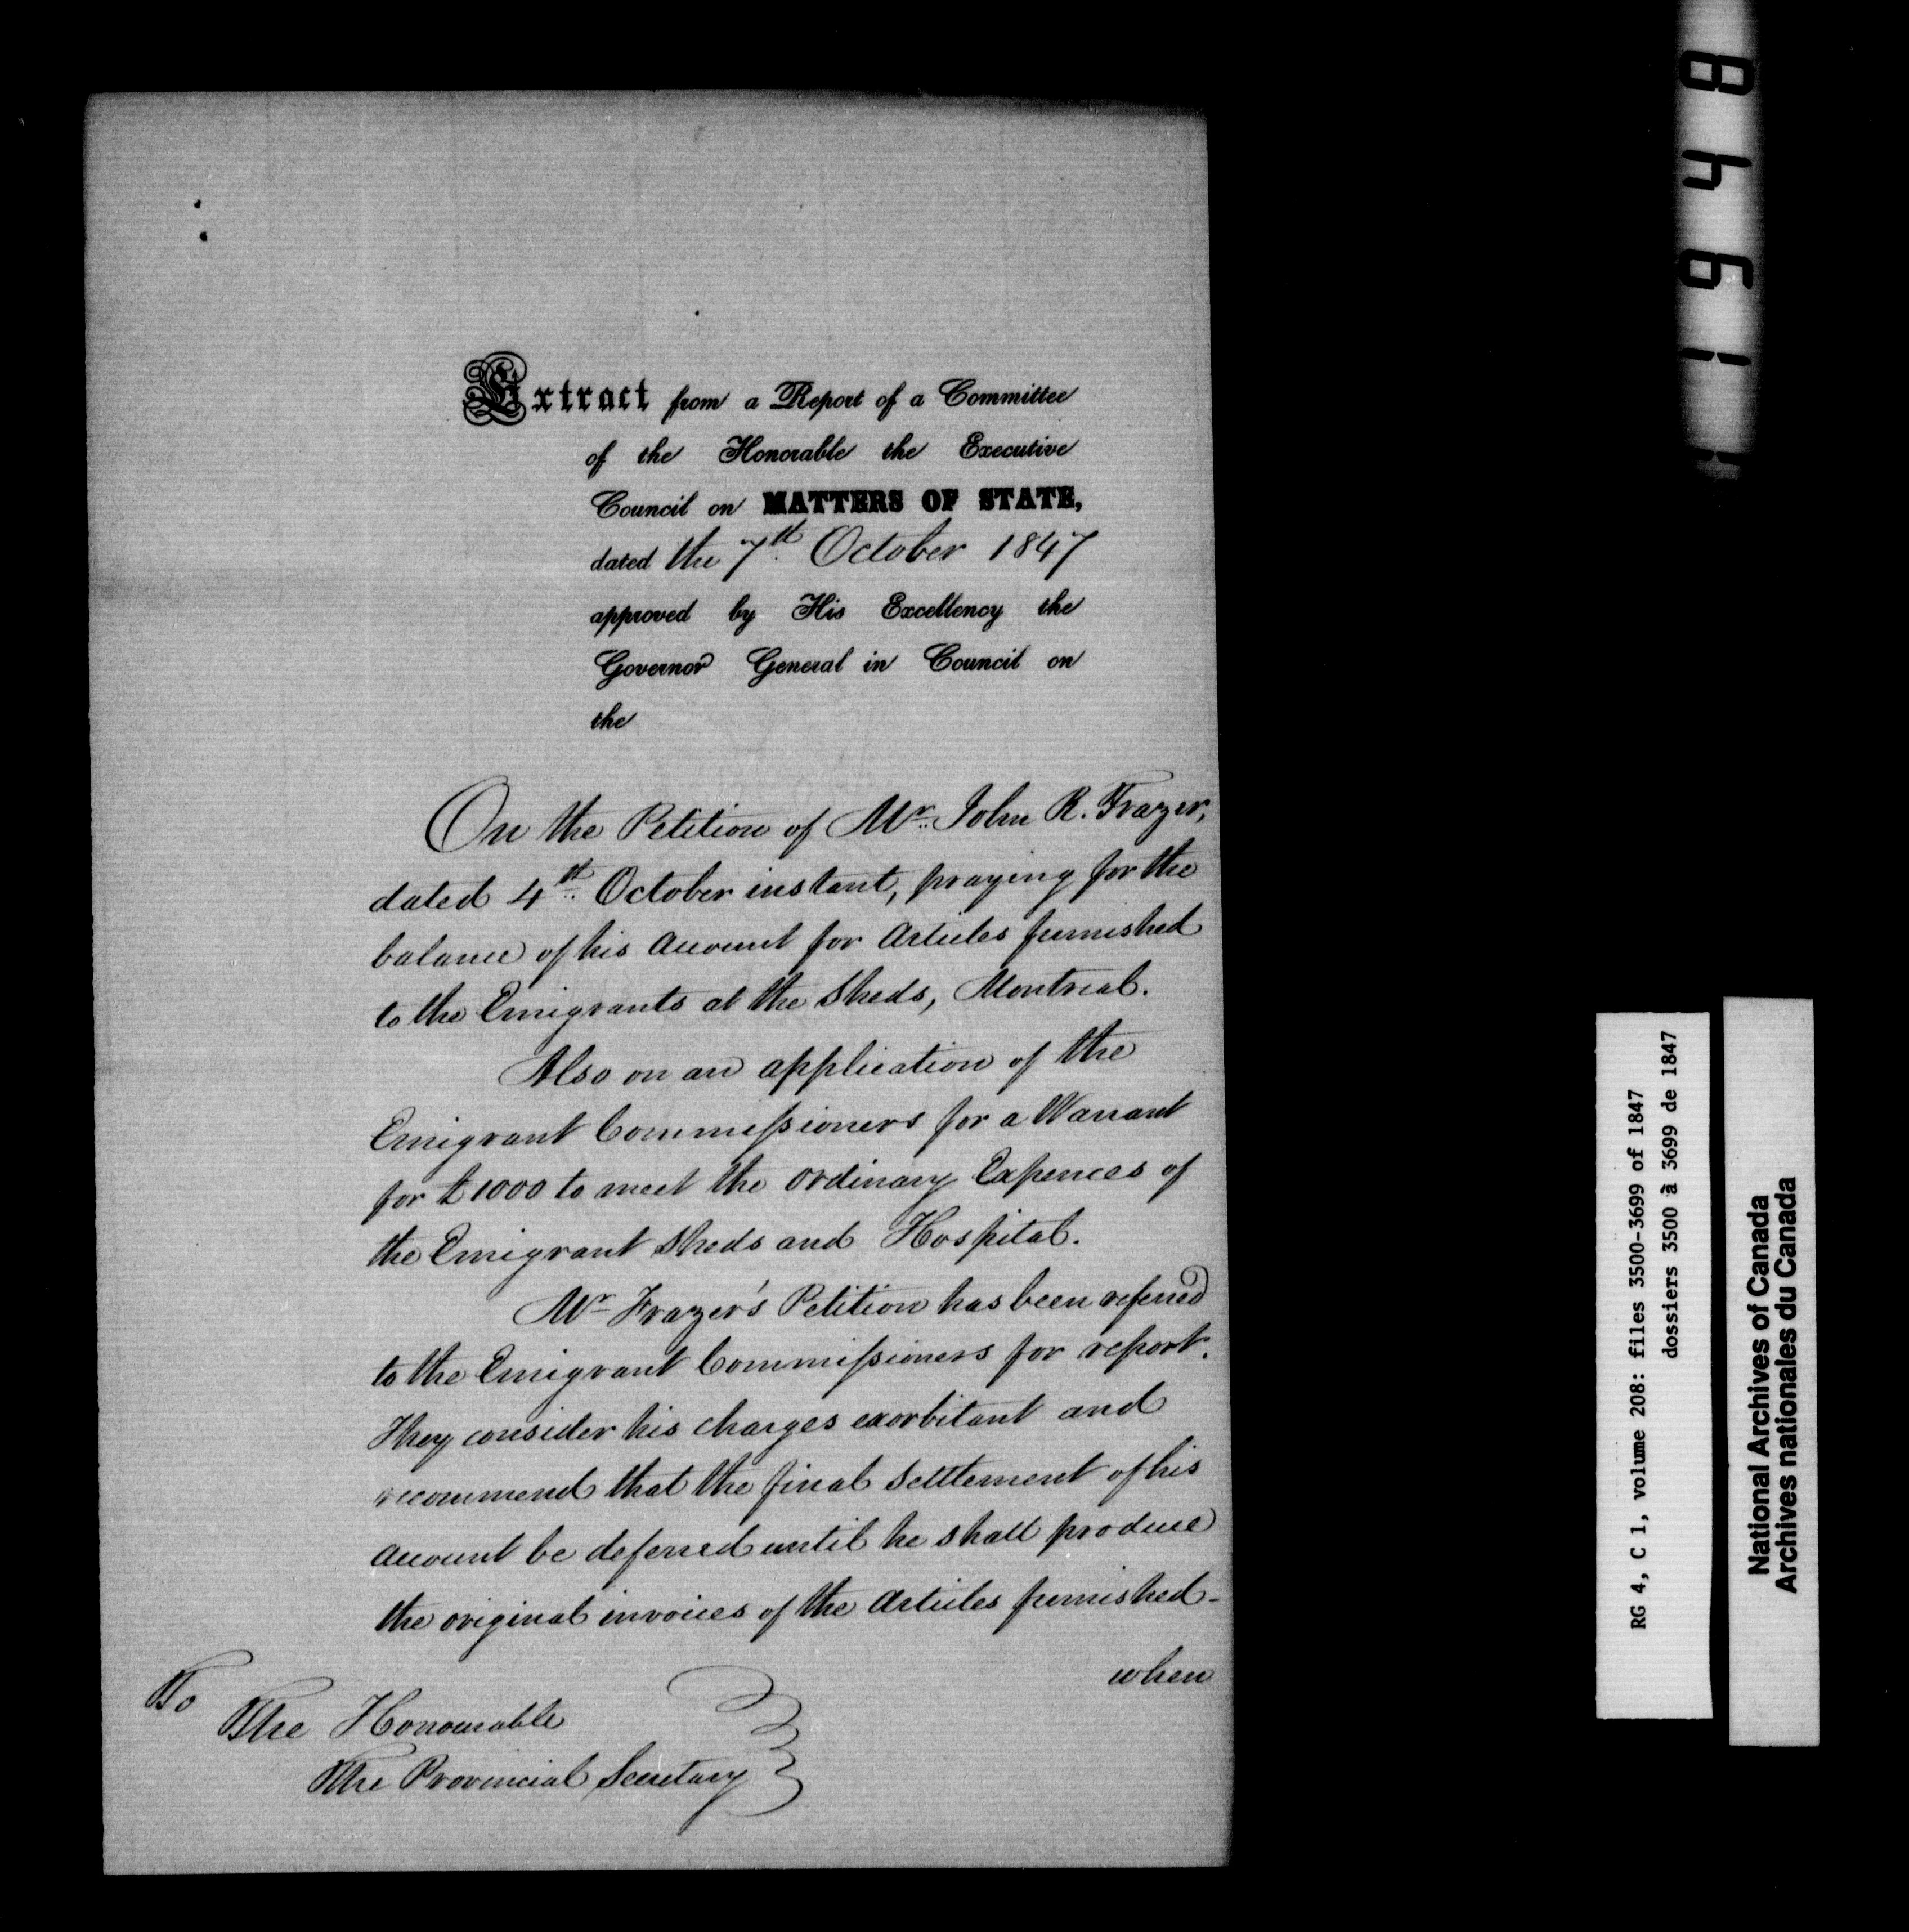 Extract from a Report of a Committee
of the Honorable the Executive
Council on MATTERS OF STATE,
dated the 7th October 1847
approved by His Excellency the
Governor General in Council on
the
On the Petition of Mr. John R. Frazer,
dated 4th October instant, praying for the
balance of his Account for Articles furnished
to the Emigrants at the Sheds, Montreal.
Also on an application of the
Emigrant Commissioners for a Warrant
for £1000 to meet the ordinary Expences of
the Emigrant Sheds and Hospital.
Mr Frazer's Petition has been referred
to the Emigrant Commissioners for report.
They consider his charges exorbitant and
recommend that the final settlement of his
Account be deferred until he shall produce
the original invoices of the Articles furnished-
when
To
The Honourable
The Provincial Secretary
8491
RG 4, C 1, volume 208: files 3500-3699 of 1847
dossiers 3500 à 3699 de 1847
National Archives of Canada
Archives nationales du Canada